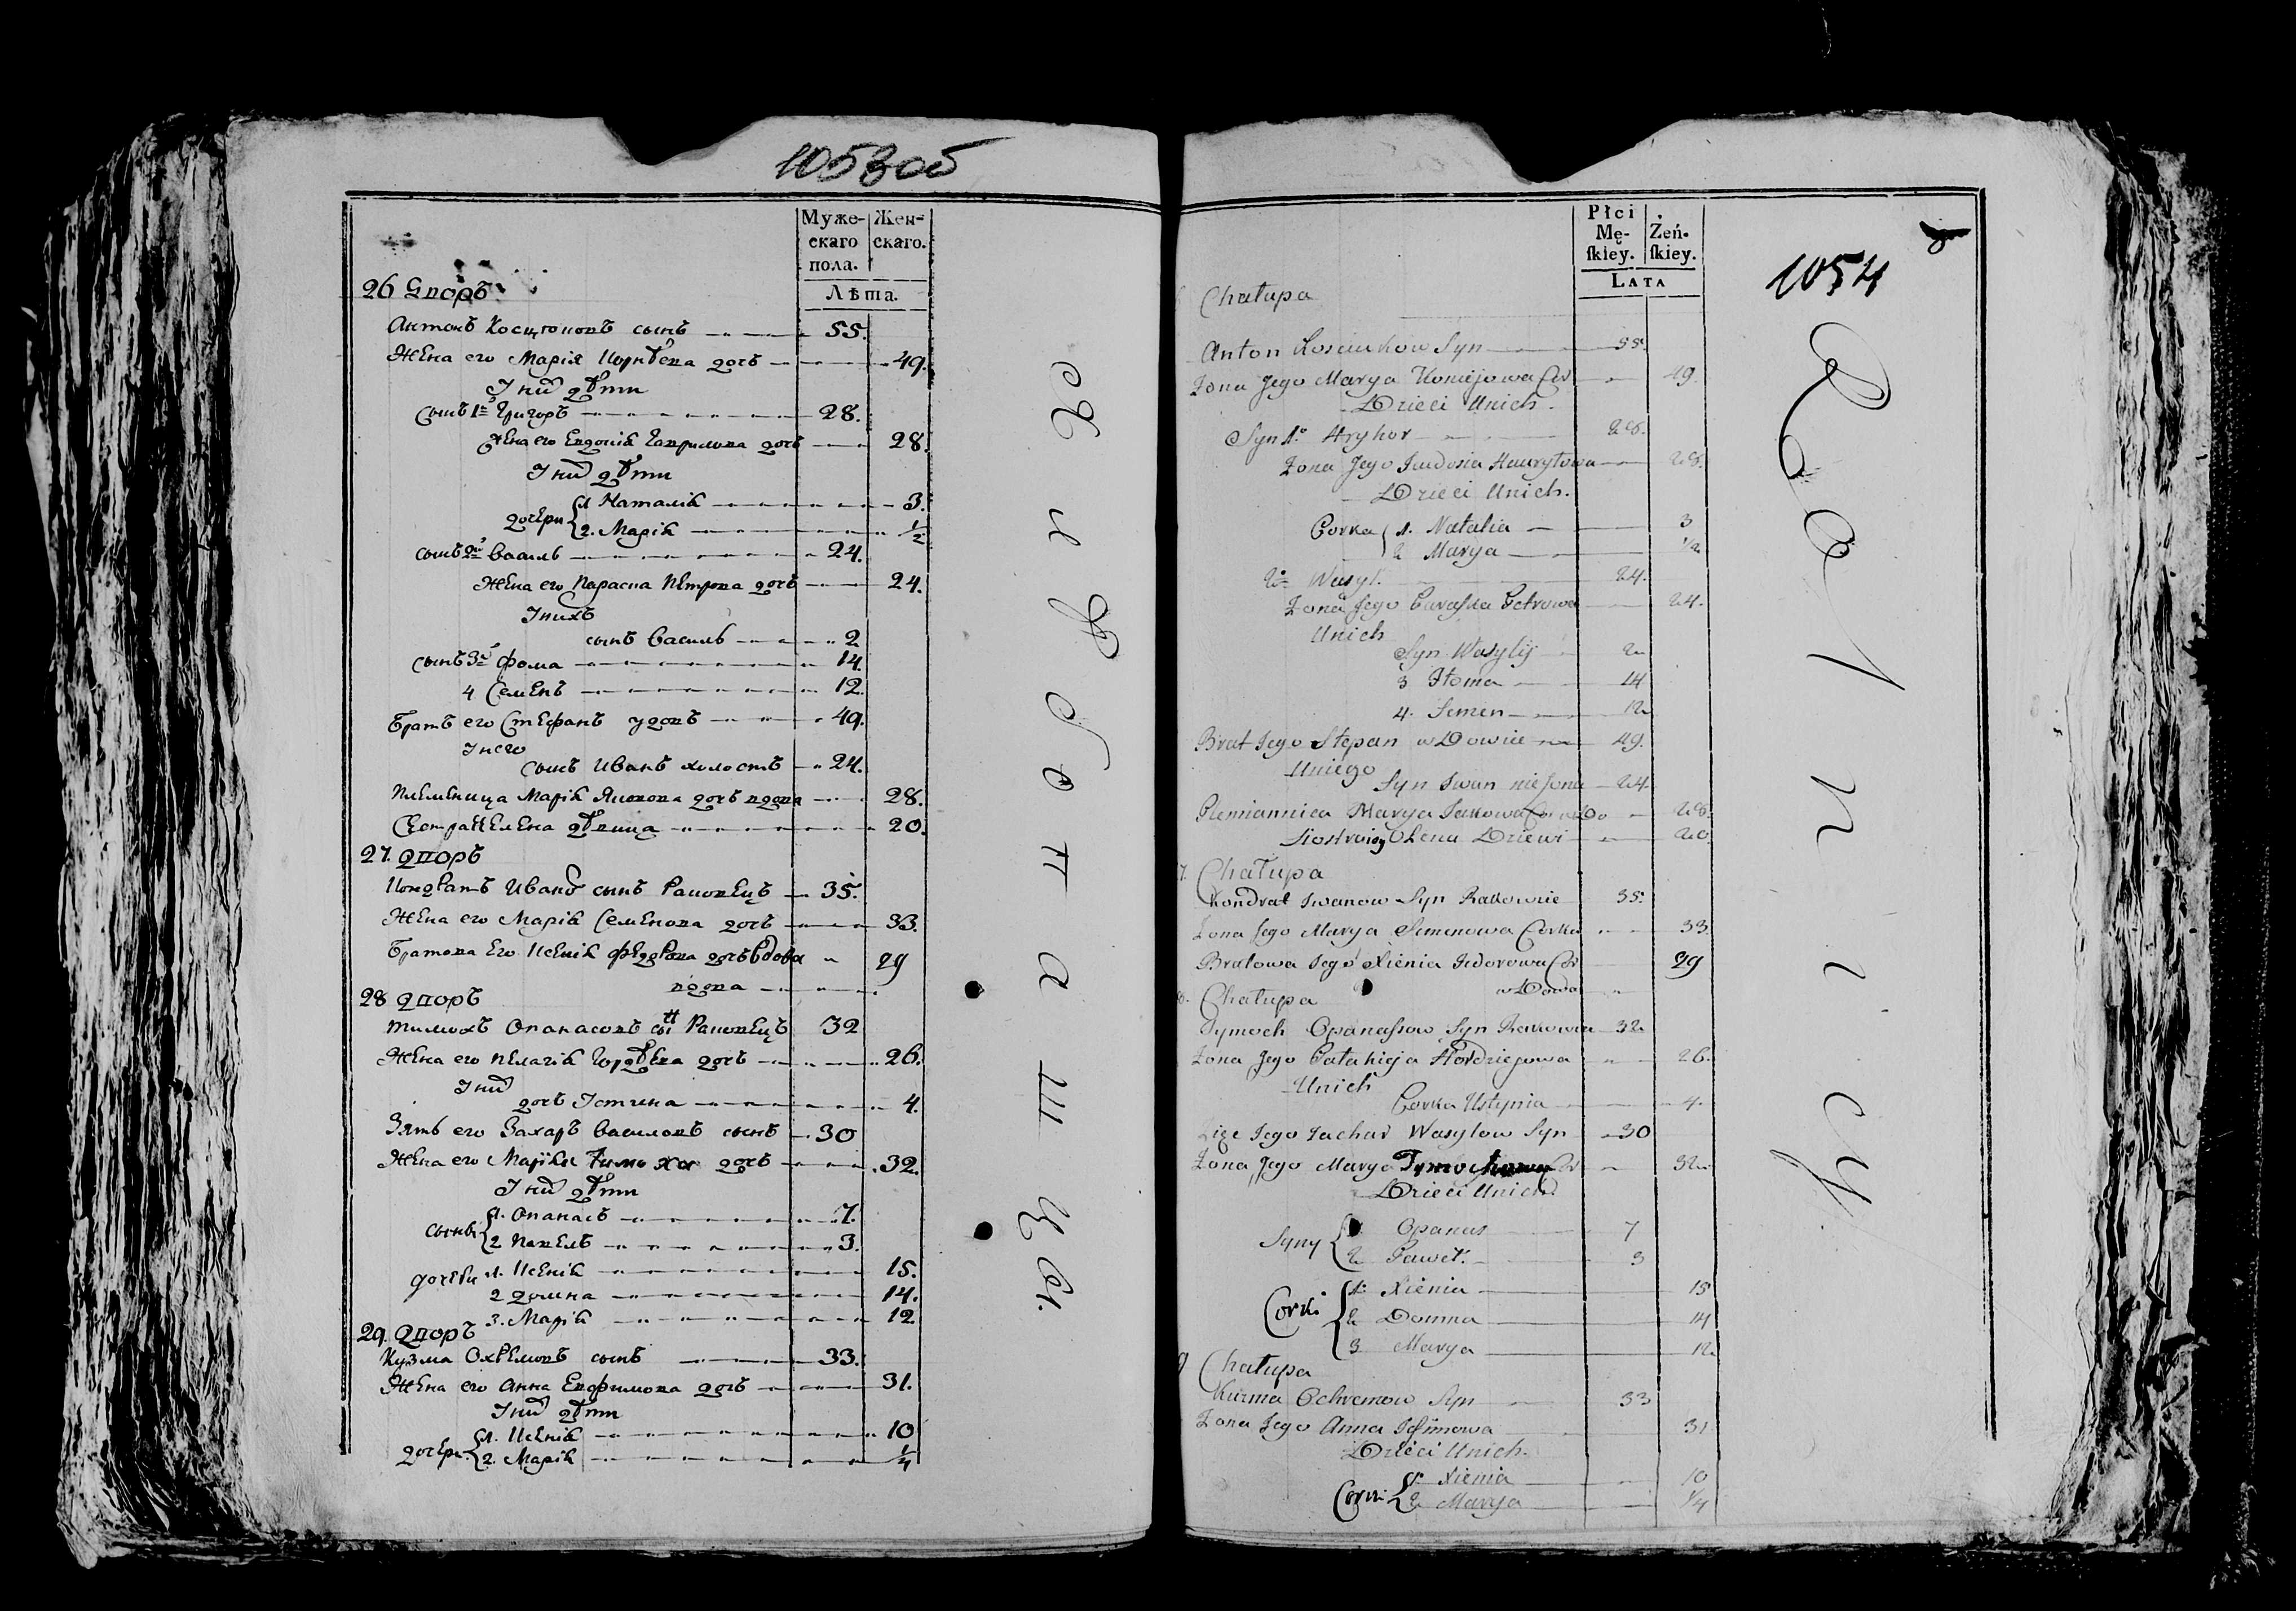 1053об
Муже-
скаго
пола.
Жен-
скаго.
Лѣта.
26 Дворъ
Антонъ Косцюковъ сынъ 55.
Жена его Марія Корнѣева дочь 49.
У них дѣти
Сынъ 1й Григоръ 28.
Жена его Евдокія Гаврилова дочь 28.
У них дѣти
дочери 1. Наталія 3.
2. Марія 1/2
сынъ 2й Василь 24.
Жена его Параска Петрова дочь 24.
У нихъ
сынъ Василь 2
сынъ 3й Фома 14.
4 Семенъ 12.
Братъ его Стефанъ удовъ 49.
У него
сынъ Иванъ холостъ 24.
Племеница Марія Яковова дочь вдова 28.
Сестра Елена дѣвица 20.
27. Дворъ
Кондратъ Иванов сынъ Раковецъ 35.
Жена его Марія Семенова дочь 33.
Братова Его Ксенія Федорова дочь вдова 29
вдова
28 Дворъ
Тимохъ Опанасовъ сын Раковецъ 32
Жена его Пелагія Гордѣева дочь 26.
У них
дочь Устина 4.
Зять его Захаръ Василовъ сынъ 30
Жена его Марія Тимоха дочь 32.
У них дѣти
сыны 1. Опанасъ 7.
2 Павелъ 3.
дочери 1. Ксенія 15.
2 Домна 14.
3. Марія 12
29. Дворъ
Кузма Охремовъ сынъ 33.
Жена его Анна Евфимова дочь 31.
У них дѣти
дочери 1. Ксенія 10
2. Марія 1/4
Płci
Mę-
ſkiey.
Żeń-
ſkiey.
LATA
1054
Chałupa
Anton Kosciukow Syn 55.
Zona Jego Marya Korniejowa Cor 49.
Dzieci Unich.
Syn 1o Hryhor 28.
Zona Jego Jewdosia Hawryłowa 28.
Dzieci Unich.
Corka 1. Natalia 3
2 Marya 1/2
2o Wasyl. 24.
Zona Jego Paraska Petrowa 24.
Unich
Syn Wasylij 2
3 Choma 14
4. Semen 12
Brat Jego Stepan wDowiec 49.
Uniego
Syn Iwan nieżona 24.
Plemiannica Marya Jakowa Cor wDo 28.
Siostra Olena Dziewi 20.
7. Chałupa
Kondrat Iwanow Syn Rakowiec 35.
Zona Jego Marya Semenowa Corka 33
Bratowa Jego Xienia Fedorowa Cor 29
wDowa
8. Chałupa
Tymoch Opanaſsow Syn Rakowiec 32
Zona Jego Palahieja Hordziejowa 26.
Unich
Corka Ustynia 4.
Zięc Jego Zachar Wasylow Syn 30
Zona Jego Marya Tymochowa Cor 32
Dzieci Unich
Syny 1. Opanas 7
2 Paweł. 3
Corki 1. Xienia 15
2 Domna 14
3 Marya 12
9 Chałupa
Kuzma Ochremow Syn 33
Zona Jego Anna Jefimowa 31
Dzieci Unich.
Corki 1. Xienia 10
2 Marya 1/4